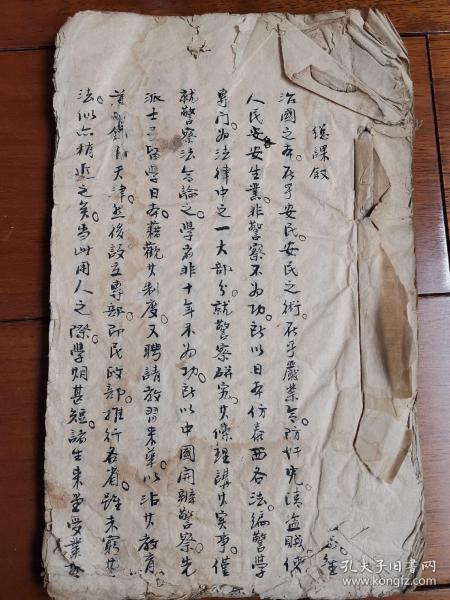 總課敘
治國之本在乎安民安民之術在乎嚴禁令防奸宄清盜賊使
人民安安生業非警察不為功所以日本仿泰西各法編警學
專门為法律中之一大部分就警察研究其條理講其实事僅
就警察法令論之學者非十年不為功所以中國開辦警察先
派士子留學日本藉觀其制度又聘請教習来華以沾其教育
天津然後設立專部即民政部推行各省雖未窮其
法似亦稍近之矣当此用人之際學期甚短諸生来堂受業
孔夫子旧书网